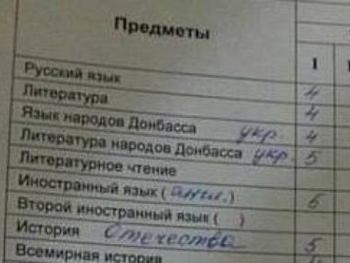 Предметы
I
Русский язык 4
Литература 4
Язык народов Донбасса укр. 4
Литература народов Донбасса укр. 5
Литературное чтение
Иностранный язык ( англ. ) 5
Второй иностранный язык ( )
История Отечества 5
Всемирная история